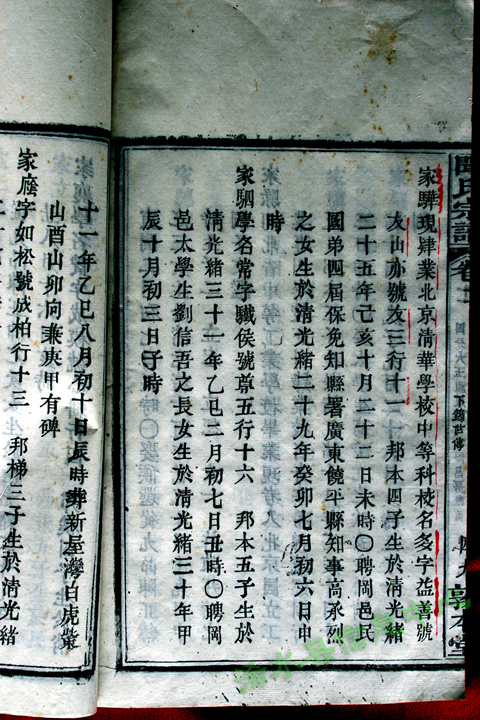 聞氏宗譜 卷
家驊現肄業北京清華學校中等科校名多字益善號
友山亦號友三行十一 邦本四子生於清光緒
二十五年己亥十月二十二日未時〇聘岡邑民
國弟四屆保免知縣署廣東饒平縣知事高承烈
之女生於清光緒二十九年癸卯七月初六日申
時
家駟學名常字幟侯號章五行十六 邦本五子生於
清光緒三十一年乙巳二月初七日丑時〇聘岡
邑太學生劉信吾之長女生於清光緒三十年甲
辰十月初三日子時
十一年乙巳八月初十日辰時葬新屋灣白虎
山酉山卯向兼庚甲有碑
家䧹字如松號成柏行十三 邦梯三子生於清光緒
浠水县